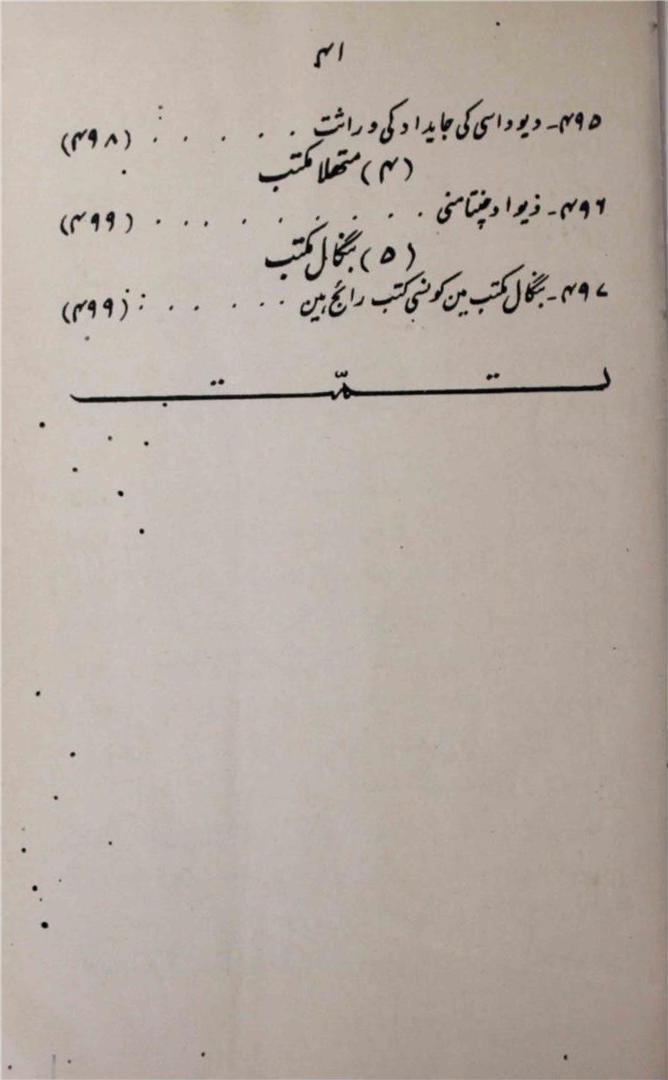 ۴۱
۴۹۵۔ دیوداسی کی جایداد کی وراثت . . . . . (۴۹۸)
(۴) متھلا مکتب
۴۹۶۔ ذیواد چنتامنی . . . . . . . . . (۴۹۹)
(۵) بنگال مکتب
۴۹۷۔ بنگال مکتب مین کونسی کتب رائج ہین . . . . . . (۴۹۹)
تمّت